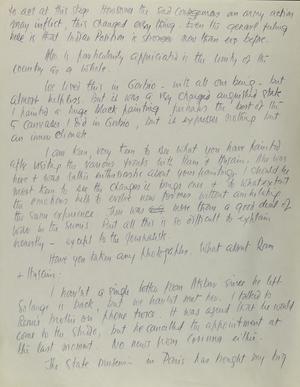 to act at this stage. However the sad consequences an army action
may inflict, this changed everything. Even the general feeling
here is that Indian Position is stronger now than ever before.
Also is particularly appreciated is the unity of the
country as a whole.
We lived this in Gorbio - with all our being - but
almost helpless. But it was a very changed anguished state.
I painted a huge black painting perhaps the best of the
5 canvases I did in Gorbio, but it expresses nothing but
an inner climate.
I am keen, very keen to see what you have painted
after visiting the various fronts with Ram & Husain. He was
here & was talking enthusiastically about your paintings. I should be
most keen to see the changes it brings once & to what extent
the emotions help to evolve new forms without annihilating
the same experience. There was more than a good deal of
love in the ruins. But all this is so difficult to explain
honestly - except to the journalists.
Have you taken any photographs. What about Ram
& Husain.
I haven't a single letter from Akbar since he left.
Solange is back, but we haven't met her. I talked to
Ram's brother on 'phone twice. It was agreed that he would
come to the studio, but he cancelled the appointment at
the last moment. No news from Krishna either.
The State Museum - in Paris has bought my big